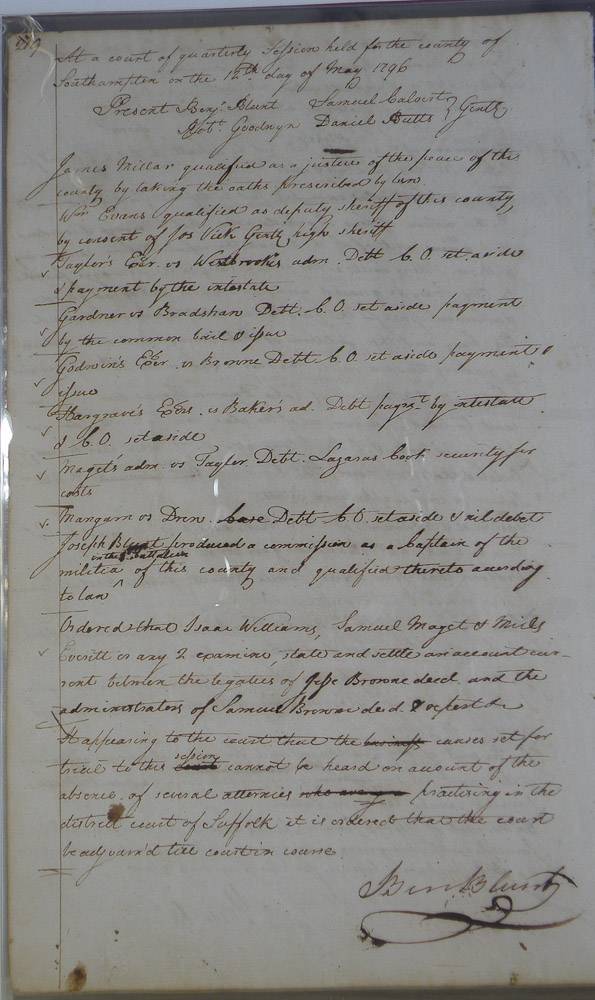 At a court of quarterly Session held for the county of
Southampton on the 12th day of May 1796
Present Benja Blunt Samuel Calvert } Gentn
Robt Goodwyn Daniel Butts
James Millar qualified as a justice of the peace of the
county by taking the oaths prescribed by law
Wm Evans qualified as deputy sheriff of this county,
by consent of Jos Vick Gentn high sheriff
Taylor's Exr. vs Westbrook's adm. Debt C.O. set aside
& payment by the intestate
Gardner vs Bradshaw Debt. C.O. set aside payment
by the common bail & issue
Godwin's Exer. vs Browne Debt C.O. set aside payment &
issue
Hargrave's Exrs. vs Baker's ad. Debt paymt by intestate
& C.O. set aside
Maget's adm. vs Taylor Debt. Lazarus Cook security for
costs
Mangum vs Drew. Case Debt C.O. set aside & nil debet
Joseph Blunt produced a commission as a Captain of the
in the battalion
militia of this county and qualified thereto according
to law ^
Ordered that Isaac Williams, Samuel Maget & Mills
Everitt or any 2 examine, state and settle an account cur-
rent between the legatees of Jesse Browne decd and the
administrators of Samuel Browne decd & report &c
It appearing to the court that the business causes set for
session
trial to this Court cannot be heard on account of the
absence of several attornies who are practising in the
district court of Suffolk it is ordered that the court
be adjourn'd till court in course
Ben Blunt